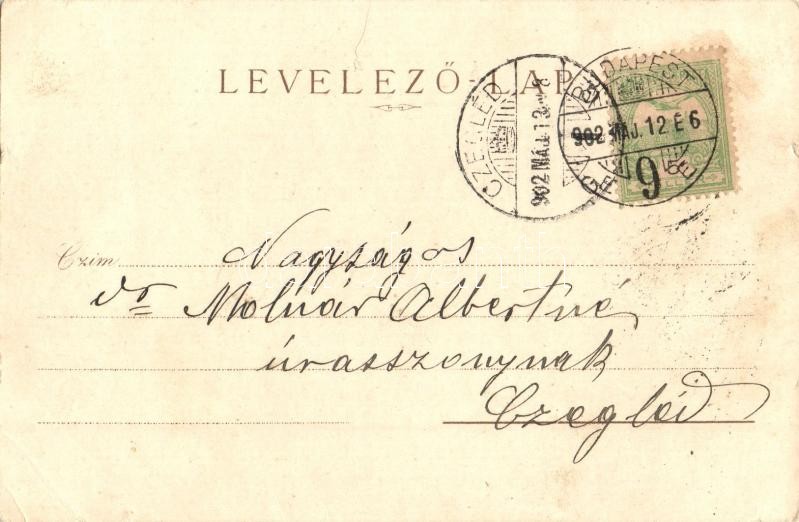 LEVELEZŐ-LAP
CZEGLÉD
902 MÁJ. 13
BUDAPEST
902 MÁJ. 12 E 6
9
Czim
Nagyságos
dr Molnár Albertné
úrasszonynak
Czegléd